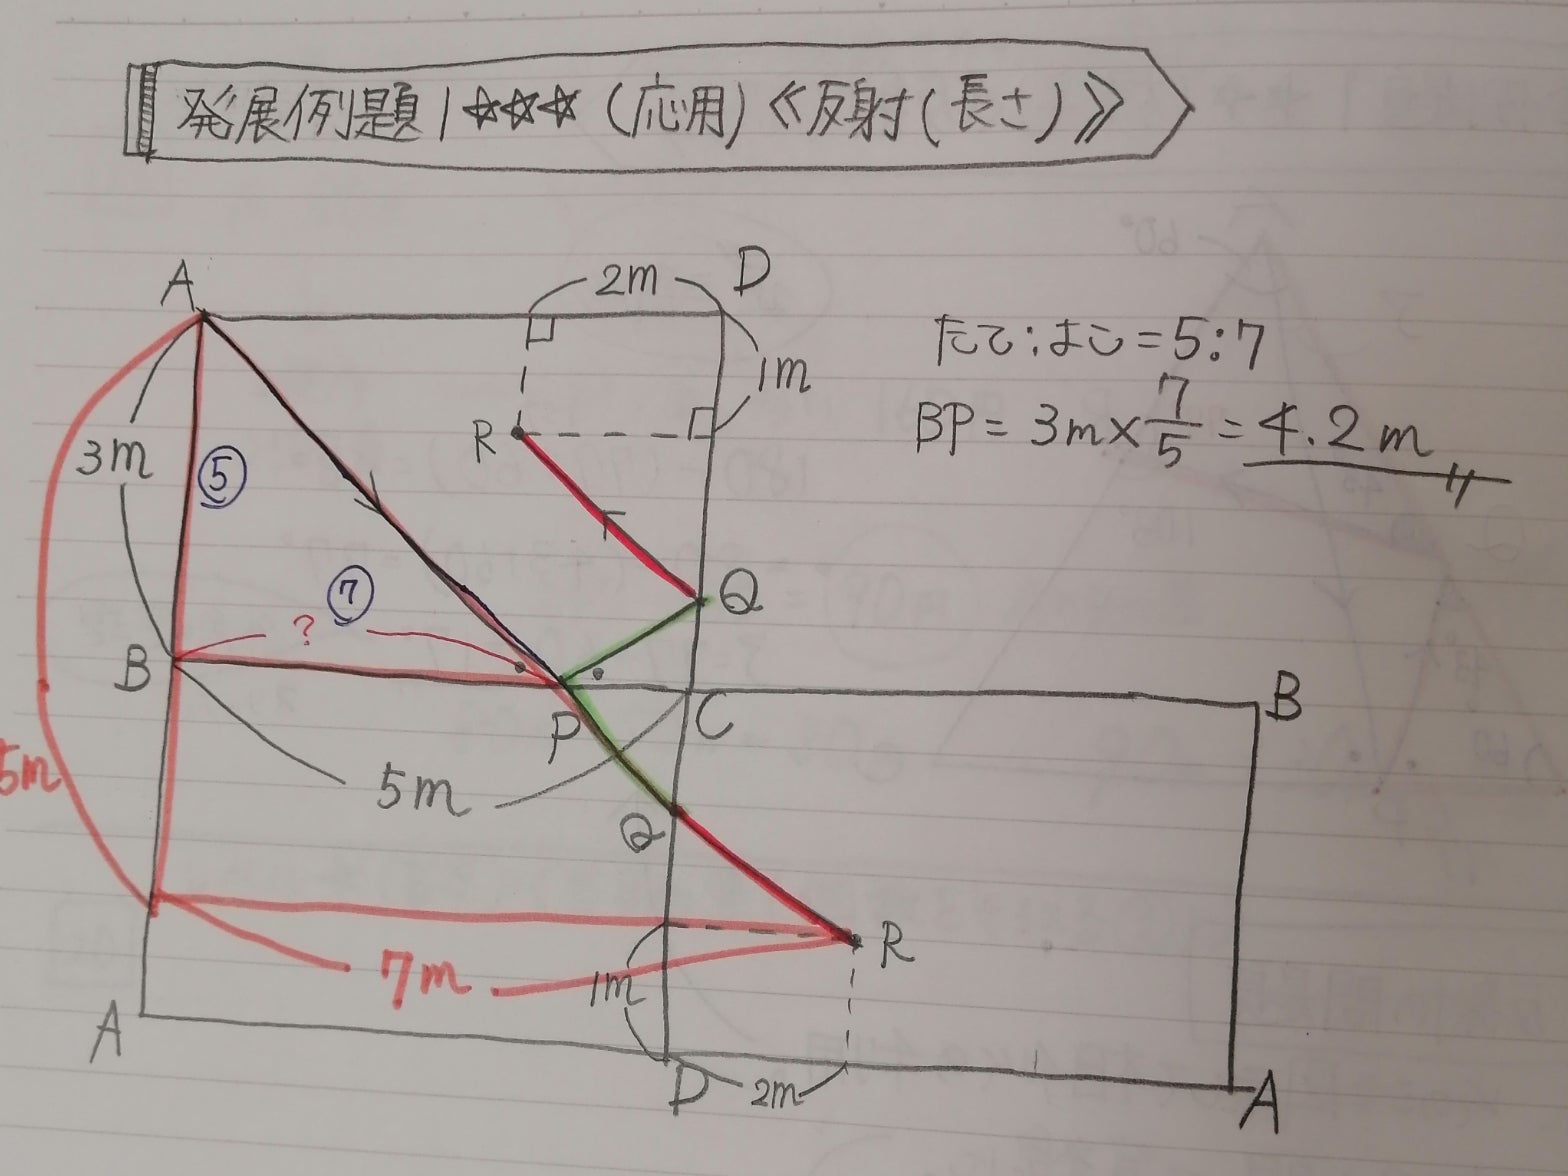 発展例題1☆☆☆(応用)≪反射(長さ)≫
A
2m
D
1m
たて:よこ=5:7
BP=3m×7/5=4.2m
R
3m
⑤
⑦
?
Q
B
P
C
B
5m
5m
Q
R
7m
1m
A
D
2m
A